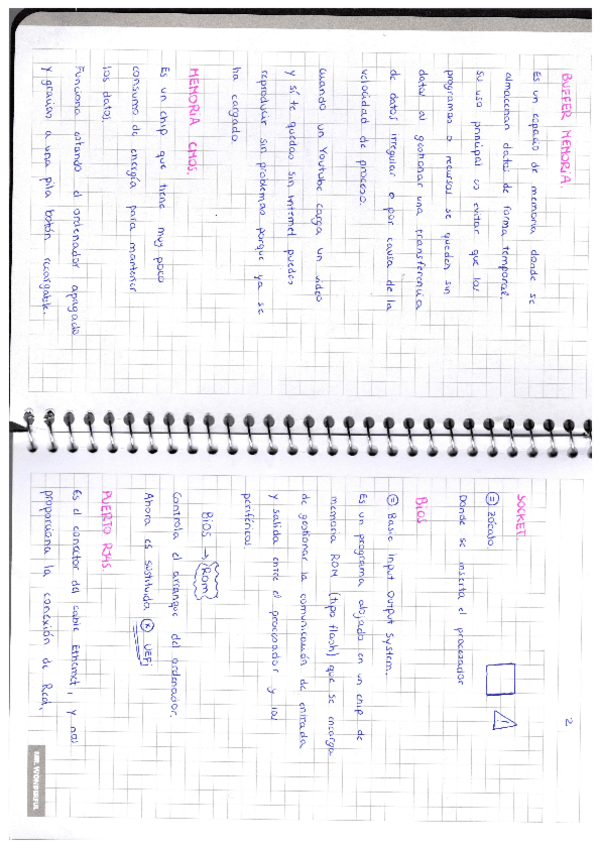 BUFFER MEMORIA.
Es un espacio de memoria donde se
almacenan datos de forma temporal.
su uso principal es evitar que los
programas o recursos se queden sin
datos al gestionar una transferencia
de datos irregular o por causa de la
velocidad de proceso.
cuando un Youtube carga un video
y si te quedas sin internet puedes
reproducir sin problemas porque ya se
ha cargado.
MEMORIA CMOS.
Es un chip que tiene muy poco
consumo de energía para mantener
los datos.
Funciona estando el ordenador apagado
y gracias a una pila botón recargable.
2
SOCKET.
= zócalo.
Donde se inserta el procesador
BIOS
= Basic Input Output System.
Es un programa alojado en un chip de
memoria ROM (tipo flash) que se encarga
de gestionar la comunicación de entrada
y salida entre el procesador y los
periféricos.
BIOS → ROM
Controla el arranque del ordenador.
Ahora es sustituida x UEFI
PUERTO RJ45.
Es el conector del cable Ethernet, y nos
proporciona la conexión de Red.
MR. WONDERFUL